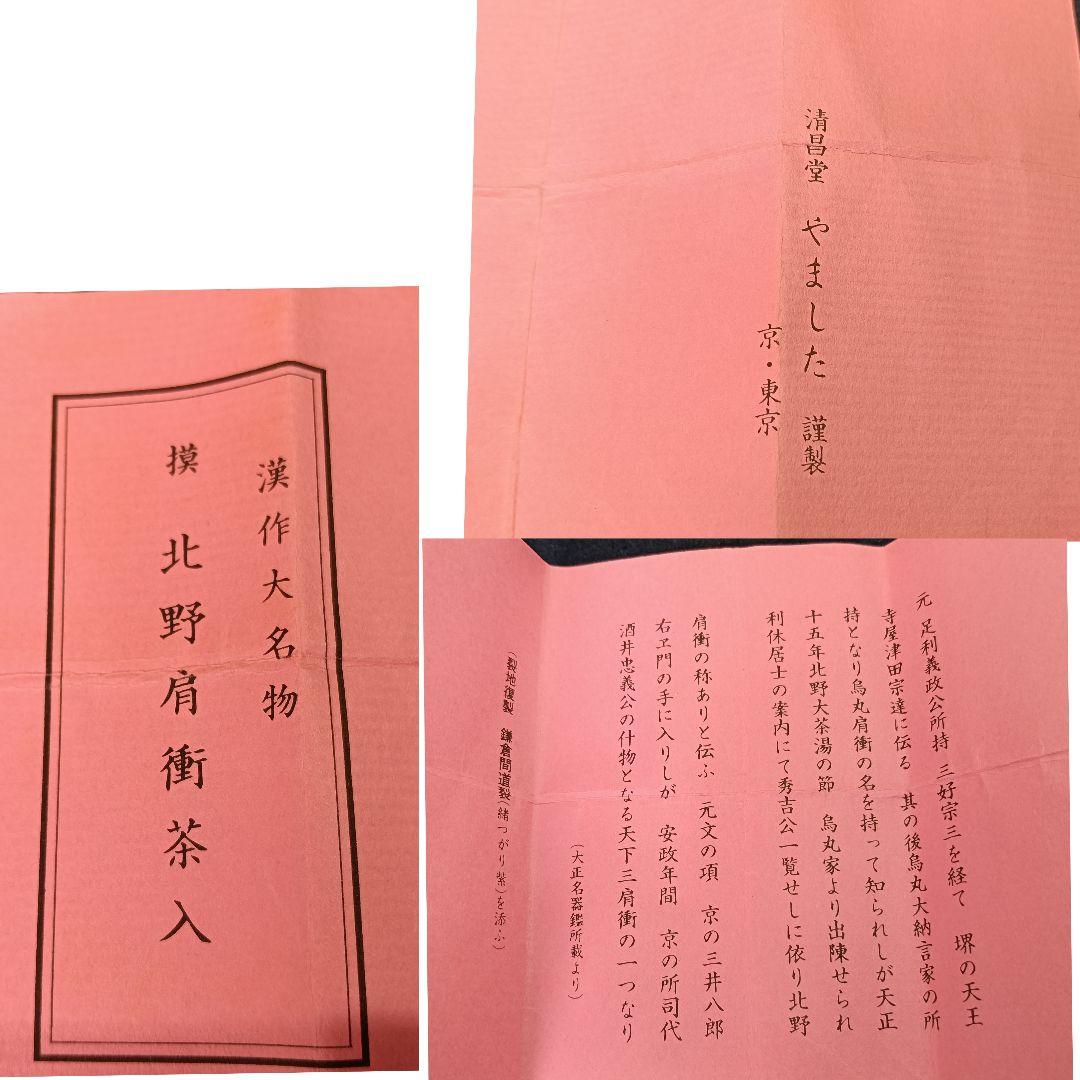 漢作大名物
摸 北野肩衝茶入
清昌堂 やました 謹製
京・東京
元 足利義政公所持 三好宗三を経て 堺の天王
寺屋津田宗達に伝る 其の後烏丸大納言家の所
持となり烏丸肩衝の名を持って知られしが天正
十五年北野大茶湯の節 烏丸家より出陳せられ
利休居士の案内にて秀吉公一覧せしに依り北野
肩衝の称ありと伝ふ 元文の項 京の三井八郎
右ヱ門の手に入りしが 安政年間 京の所司代
酒井忠義公の什物となる天下三肩衝の一つなり
(大正名器鑑所載より)
(裂地復製 鎌倉間道裂(緒つがり紫)を添ふ)